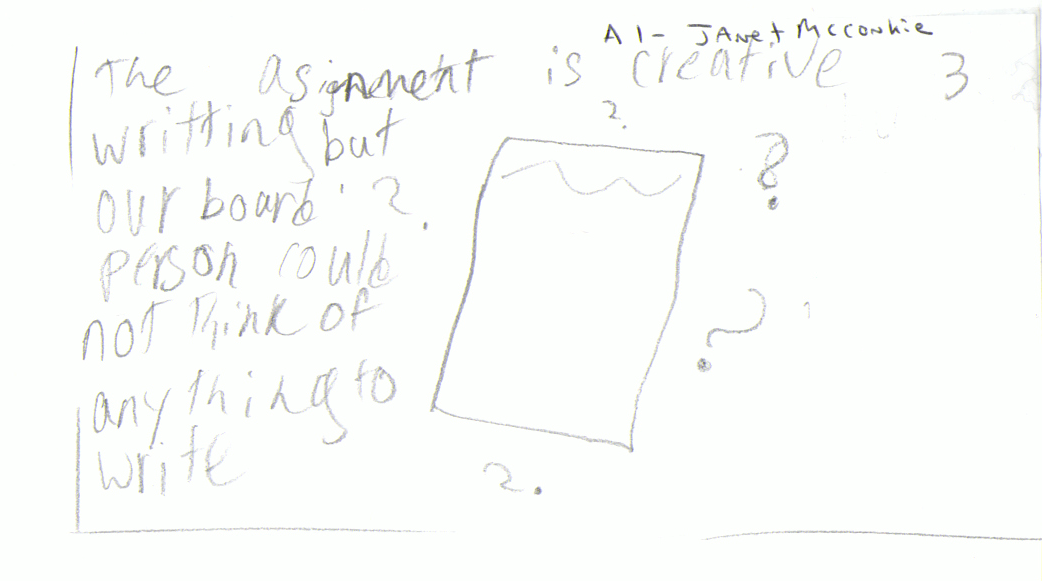 A1- JANet Mcconkie
The asignment is creative 3
writting but
our board
person could
not think of
anything to
write
?
?
?
?
?